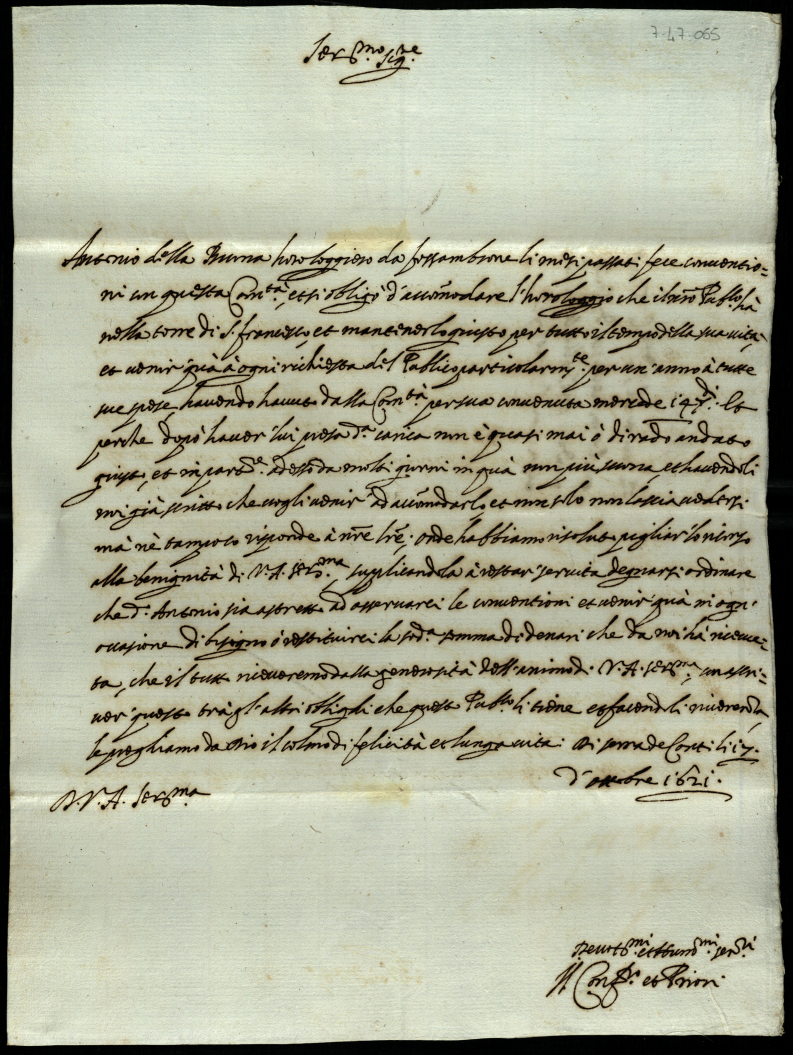 7-47-055
Ser.mo Sig.re
Antonio della Burna horologgiero da fossambrone li mesi passati fece conventio=
ni con questa Com.tà, et si obligò d'accomodare l'horologgio che il nr̃o Publ.o hà
nella torre di S. francesco, et mantenerlo giusto per tutto il tempo della sua vita,
et venir quà à ogni richiesta del Publico particolarm.te per un'anno à tutte
sue spese, havendo havuto dalla Com.tà per sua convenuta mercede 147. Et
perche dopò haver lui presa d.a carica non è quasi mai ò di rado andato
giusto, et adesso da molti giorni in quà non più suona, et havendoli
noi già scritto che vogli venir ad accomodarlo et non solo non lascia vedersi
mà nè tampoco risponde à nr̃e lr̃e; onde habbiamo risoluto pigliar lo ricorso
alla benignità di V. A. Ser.ma, supplicandola à restar servita degnarsi ordinare
che d.o Antonio sia astretto ad osservarci le conventioni et venir quà in ogni
occasione di bisogno ò restituirci la sod.a somma di denari che da noi hà ricevu=
ta, che il tutto riceveremo dalla generosità dell'animo di V. A. Ser.ma, con ascri=
ver questo trà gl'altri oblighi che questo Publ.o li tiene et facendoli riverenza
le preghiamo da Dio il colmo di felicità et lunga vita. Di serra de Conti li 17.
d'ottobre 1621.
D. V. A. Ser.ma
Devot.mi et ser.ri
Il Conf.re et Priori